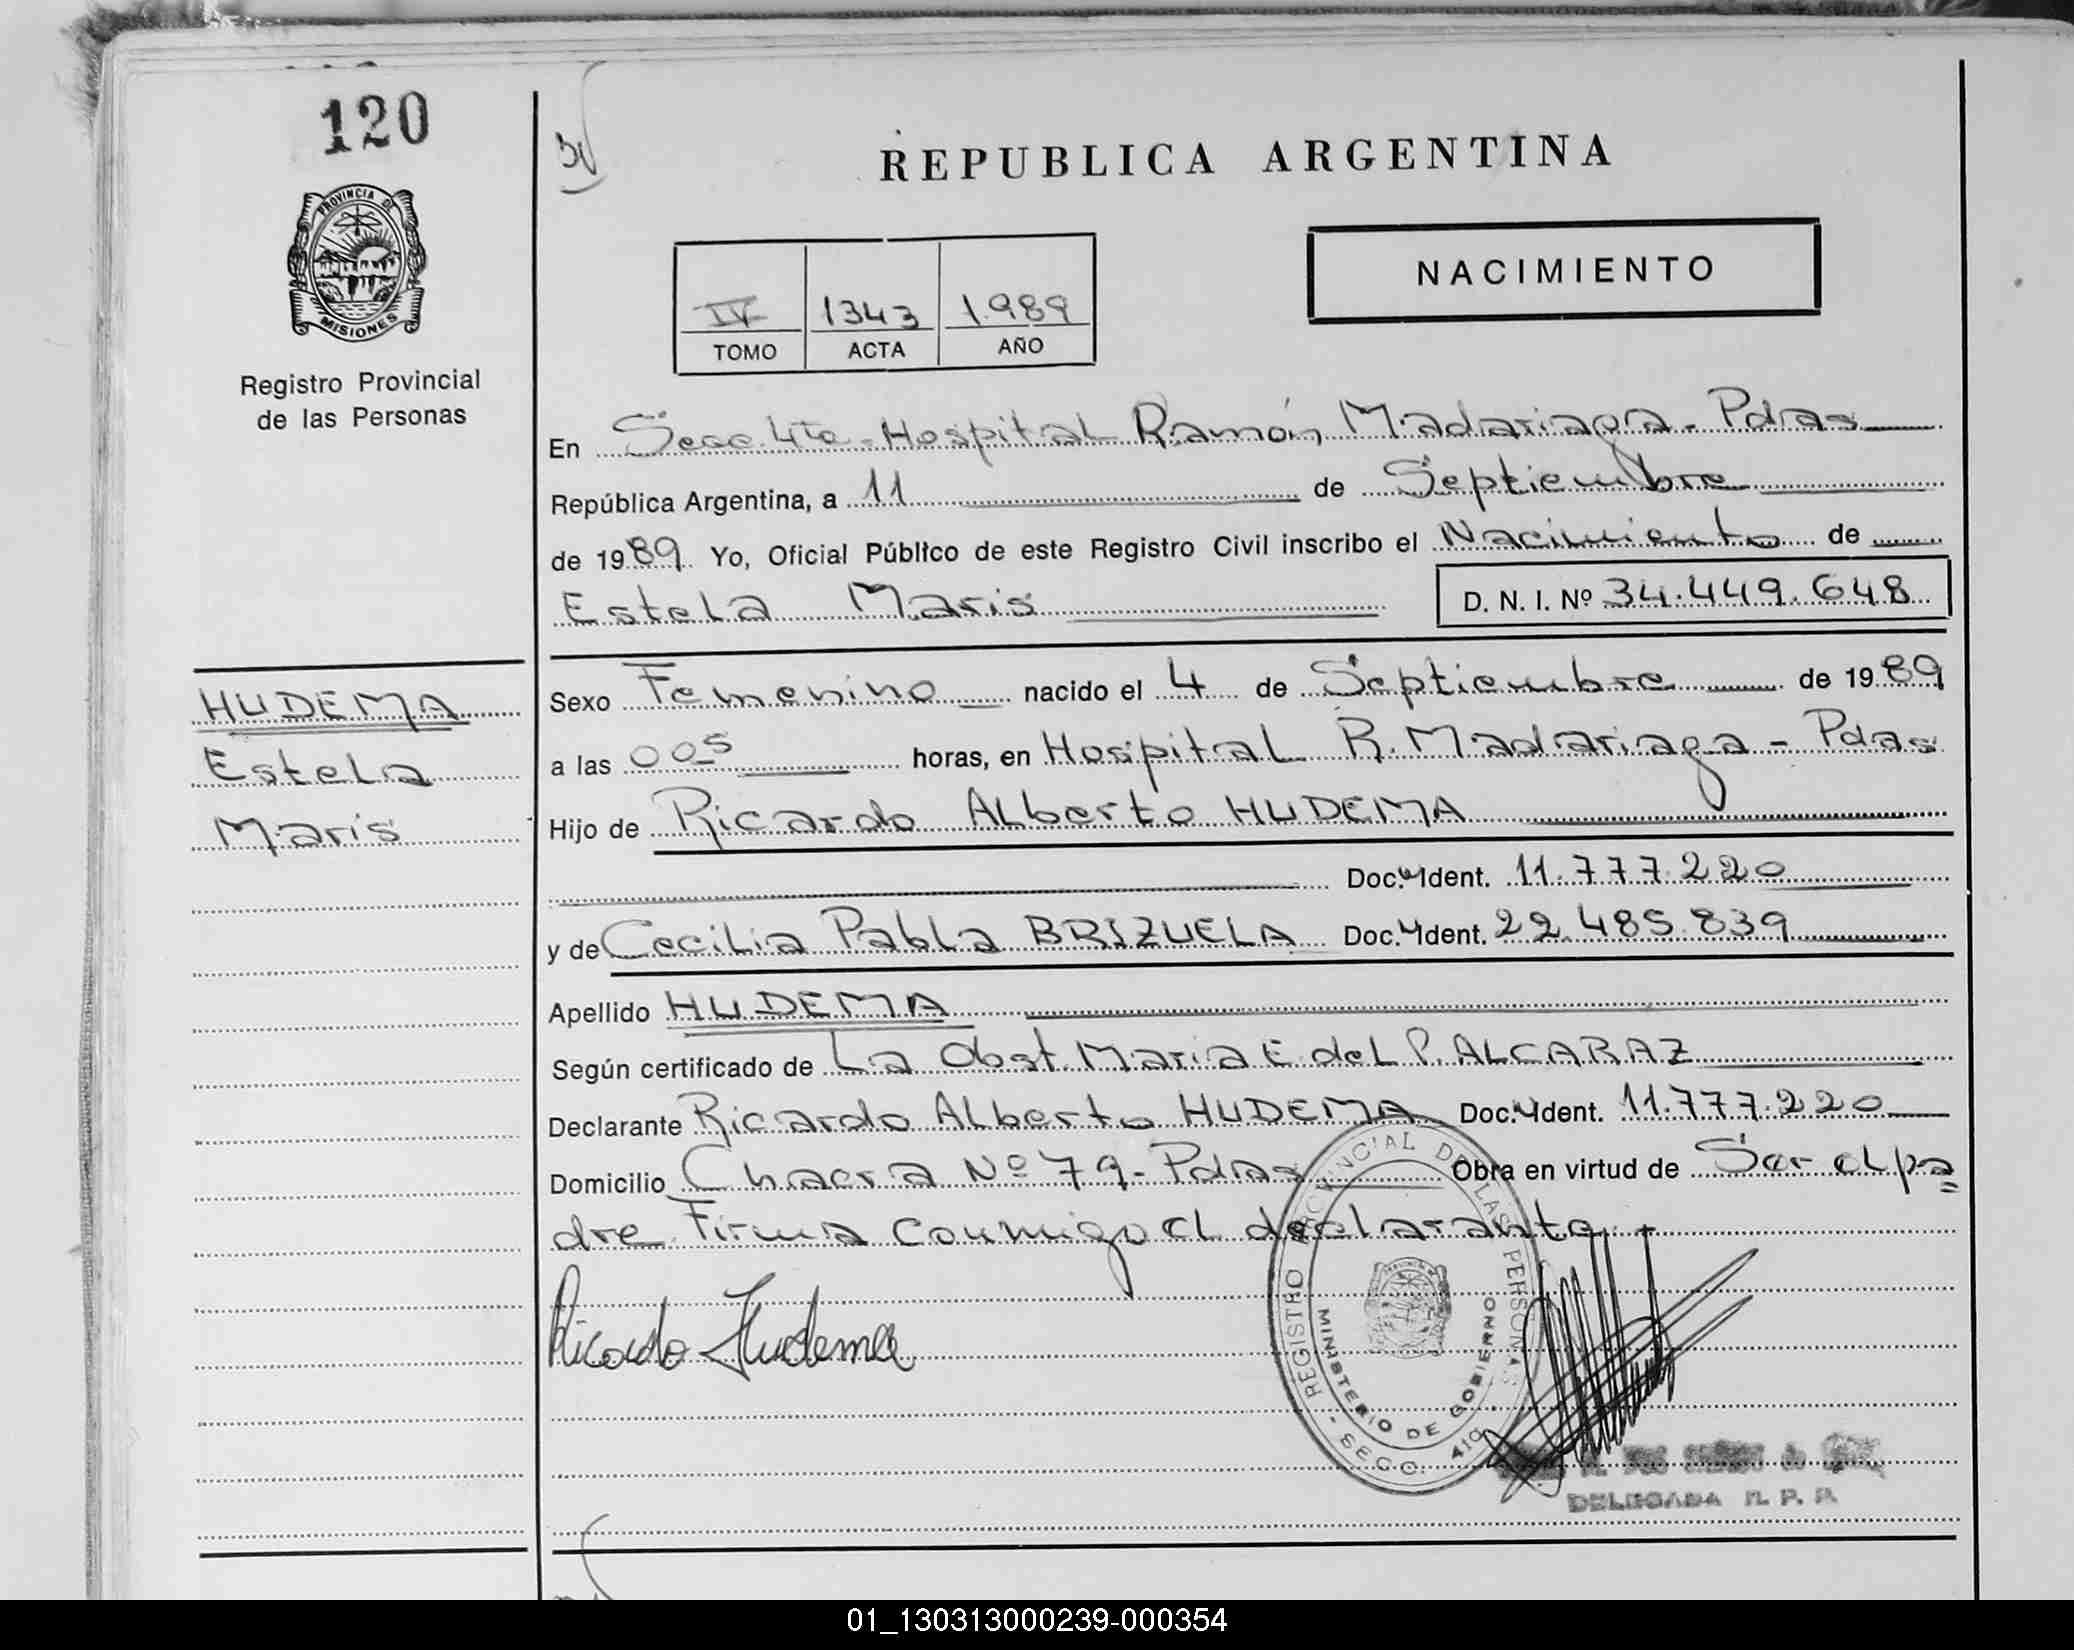 120
PROVINCIA DE
MISIONES
Registro Provincial
de las Personas
REPUBLICA ARGENTINA
NACIMIENTO
IV 1343 1.989
TOMO ACTA AÑO
En Secc 4ta - Hospital Ramón Madariaga - Pdas
República Argentina, a 11 de Septiembre
de 1989 Yo, Oficial Público de este Registro Civil inscribo el Nacimiento de
Estela Maris D. N. I. Nº 34.449.648
HUDEMA
Estela
Maris
Sexo Femenino nacido el 4 de Septiembre de 1989
a las 005 horas, en Hospital R. Madariaga - Pdas
Hijo de Ricardo Alberto HUDEMA
Doc. Ident. 11.777.220
y de Cecilia Pabla BRIZUELA Doc. Ident. 22.485.839
Apellido HUDEMA
Según certificado de La Obst. Maria E. del P. ALCARAZ
Declarante Ricardo Alberto HUDEMA Doc. Ident. 11.777.220
Domicilio Chacra Nº 79 - Pdas Obra en virtud de Ser el pa
dre Firma conmigo el declarante
Ricardo Hudema
REGISTRO PROVINCIAL DE LAS PERSONAS - SECC. 4ta
MINISTERIO DE GOBIERNO
DELEGADA R. P. P.
01_130313000239-000354